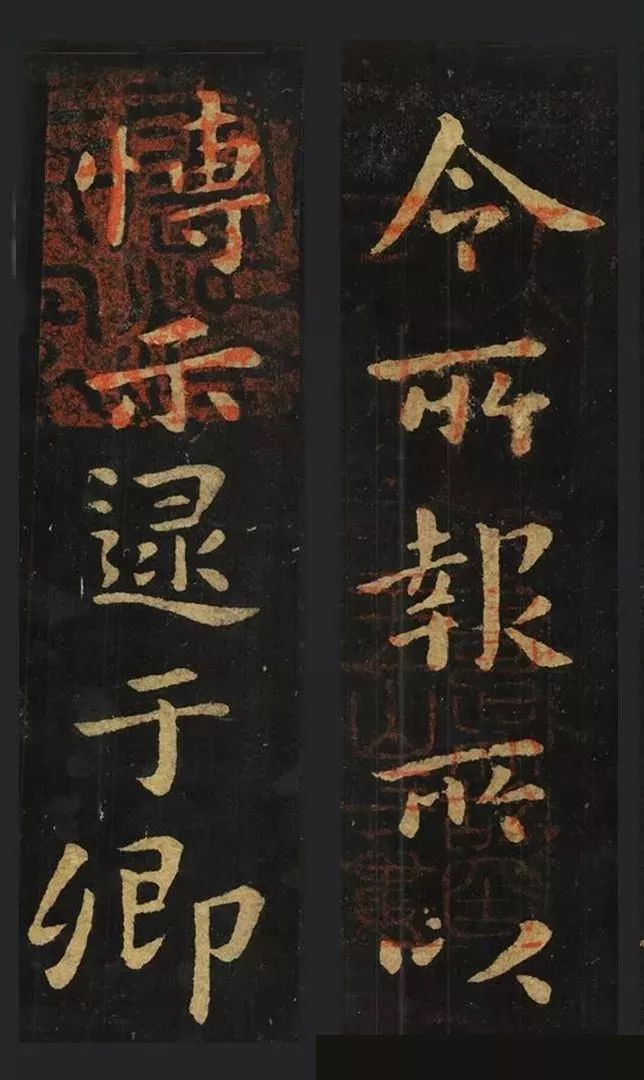 令所報所以
愽示逮于卿